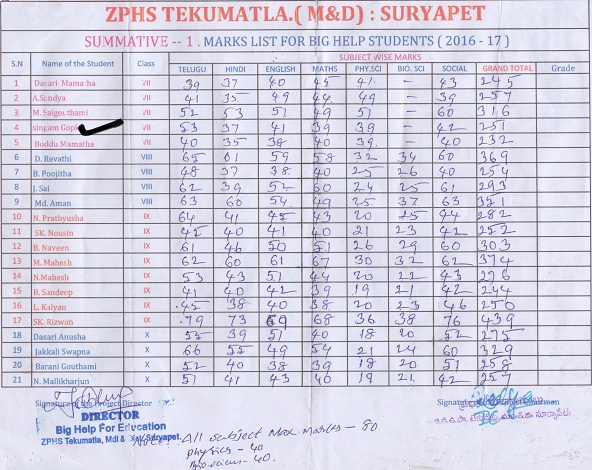 ZPHS TEKUMATLA.( M&D) : SURYAPET
SUMMATIVE -- 1 . MARKS LIST FOR BIG HELP STUDENTS ( 2016 - 17 )
S.N Name of the Student Class SUBJECT WISE MARKS
TELUGU HINDI ENGLISH MATHS PHY.SCI BIO. SCI SOCIAL GRAND TOTAL Grade
1 Dasari Mamatha VII 39 37 40 45 41 - 43 245
2 A.Sandya VII 41 35 49 44 49 - 39 257
3 M. Saigouthami VII 52 53 51 49 51 - 60 316
4 singam Gopi VII 53 37 41 39 39 - 42 251
5 Boddu Mamatha VII 40 35 38 40 39 - 40 232
6 D. Revathi VIII 65 61 59 58 32 34 60 369
7 B. Poojitha VIII 48 37 38 40 25 26 40 254
8 J. Sai VIII 62 39 52 60 24 25 61 293
9 Md. Aman VIII 63 60 54 49 25 37 63 351
10 N. Prathyusha IX 64 41 45 43 20 25 44 282
11 SK. Nousin IX 45 40 41 40 21 23 42 252
12 B. Naveen IX 61 46 50 51 26 29 60 303
13 M. Mahesh IX 62 60 61 67 30 32 62 374
14 N.Mahesh IX 53 43 51 44 20 22 43 276
15 B. Sandeep IX 41 40 42 39 19 21 42 244
16 L. Kalyan IX 45 38 40 38 20 23 46 250
17 SK. Rizwan IX 79 73 69 68 36 38 76 439
18 Dasari Anusha X 55 39 51 40 18 20 52 275
19 Jakkali Swapna X 66 55 49 54 21 24 60 329
20 Barani Gouthami X 52 40 38 39 18 20 51 258
21 N. Mallikharjun X 51 41 43 40 19 21 42 257
Signature of the Project Director Signature Chairman
DIRECTOR
Big Help For Education
ZPHS Tekumatla, Mdl & Dist Suryapet.
Note: All subject Max. Marks - 80
physics - 40
Bio sciens - 40.